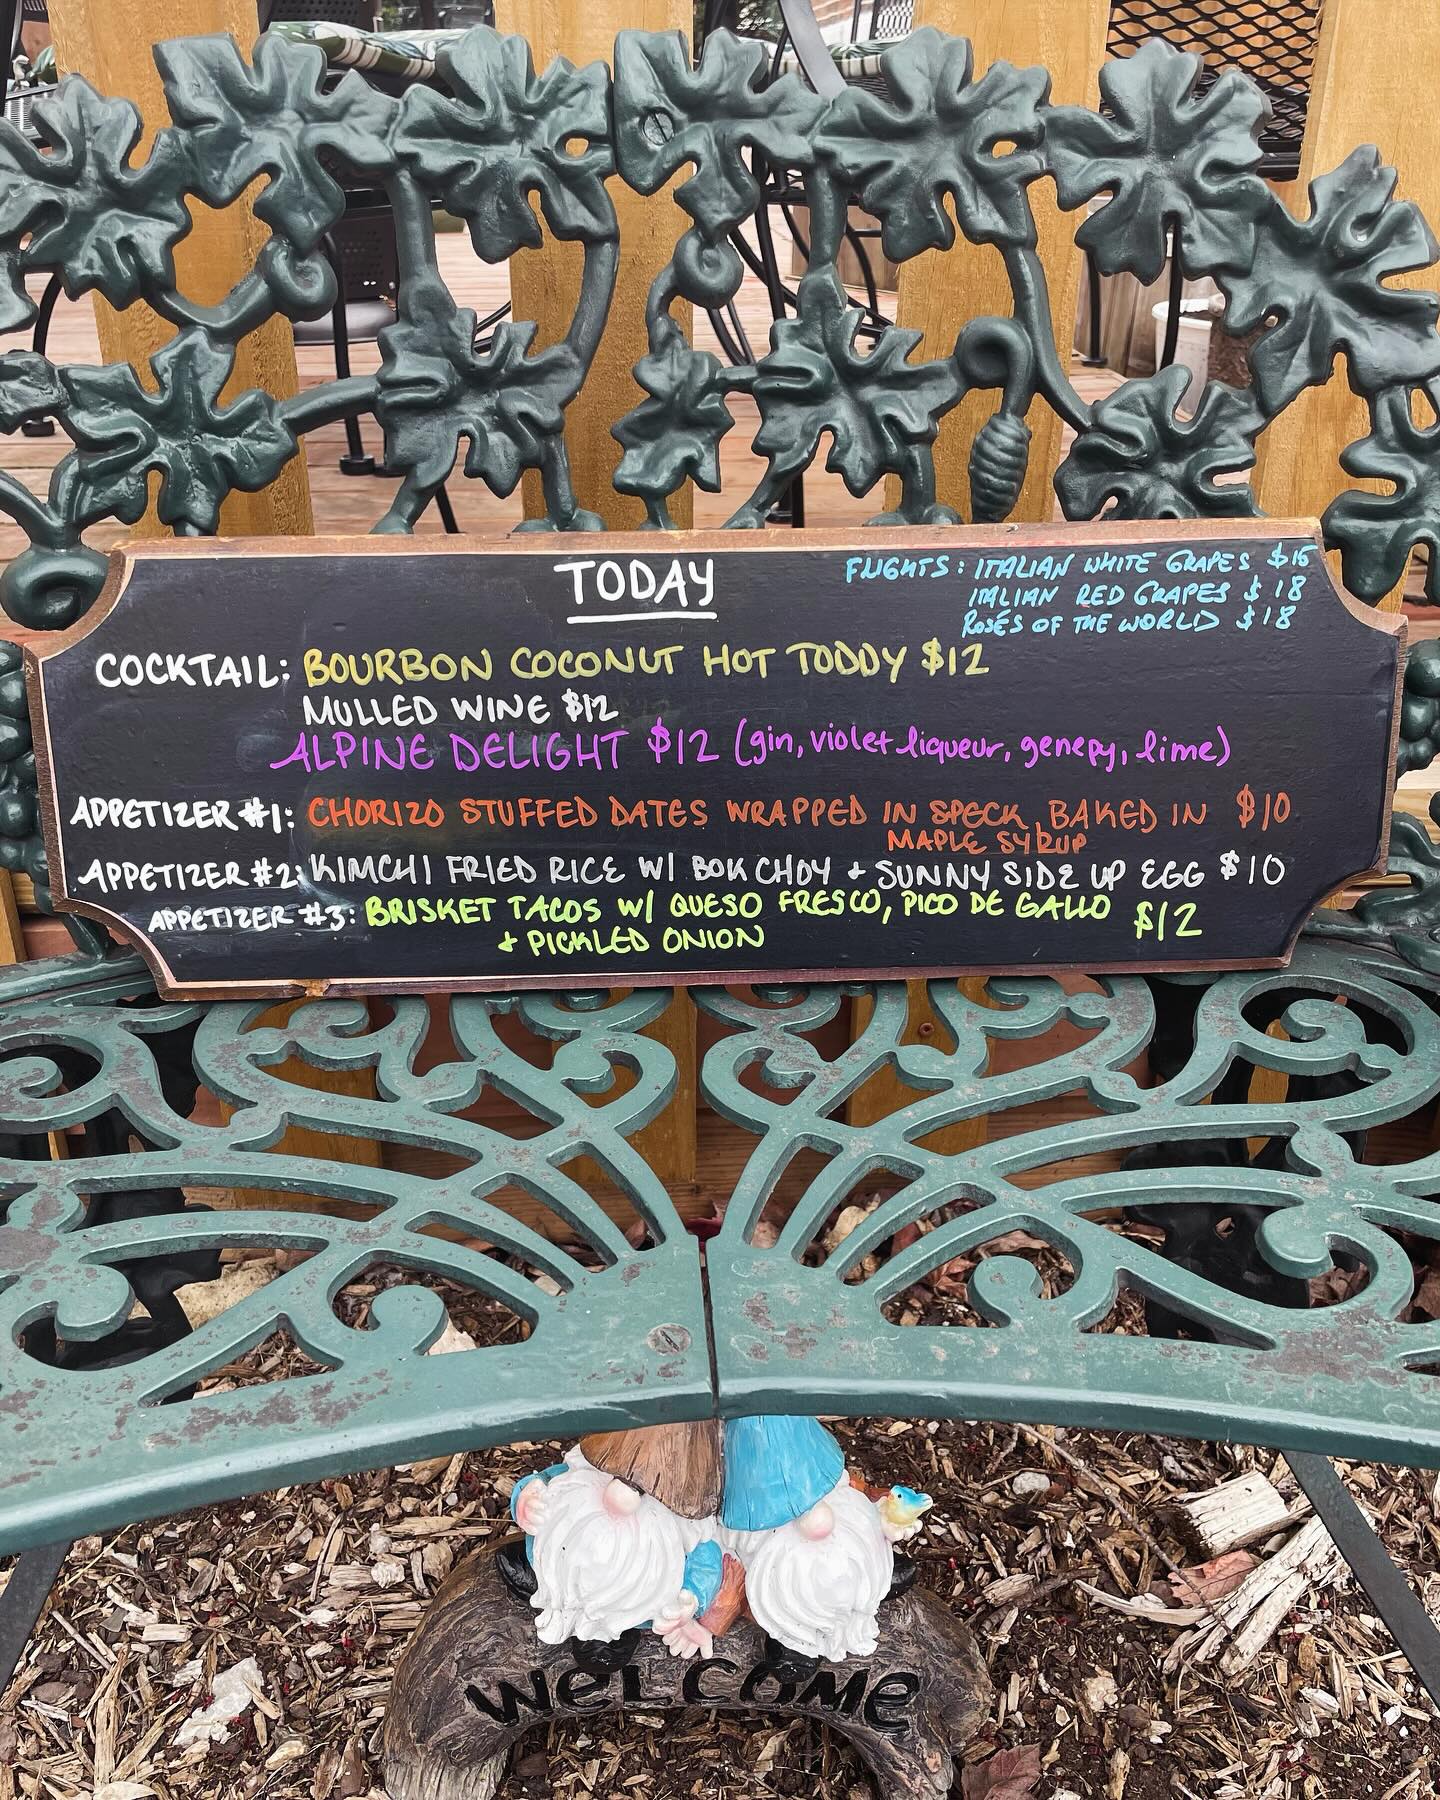 TODAY
FLIGHTS: ITALIAN WHITE GRAPES $15
ITALIAN RED GRAPES $18
ROSÉS OF THE WORLD $18
COCKTAIL: BOURBON COCONUT HOT TODDY $12
MULLED WINE $12
ALPINE DELIGHT $12 (gin, violet liqueur, genepy, lime)
APPETIZER #1: CHORIZO STUFFED DATES WRAPPED IN SPECK, BAKED IN $10
MAPLE SYRUP
APPETIZER #2: KIMCHI FRIED RICE W/ BOK CHOY + SUNNY SIDE UP EGG $10
APPETIZER #3: BRISKET TACOS W/ QUESO FRESCO, PICO DE GALLO $12
+ PICKLED ONION
WELCOME